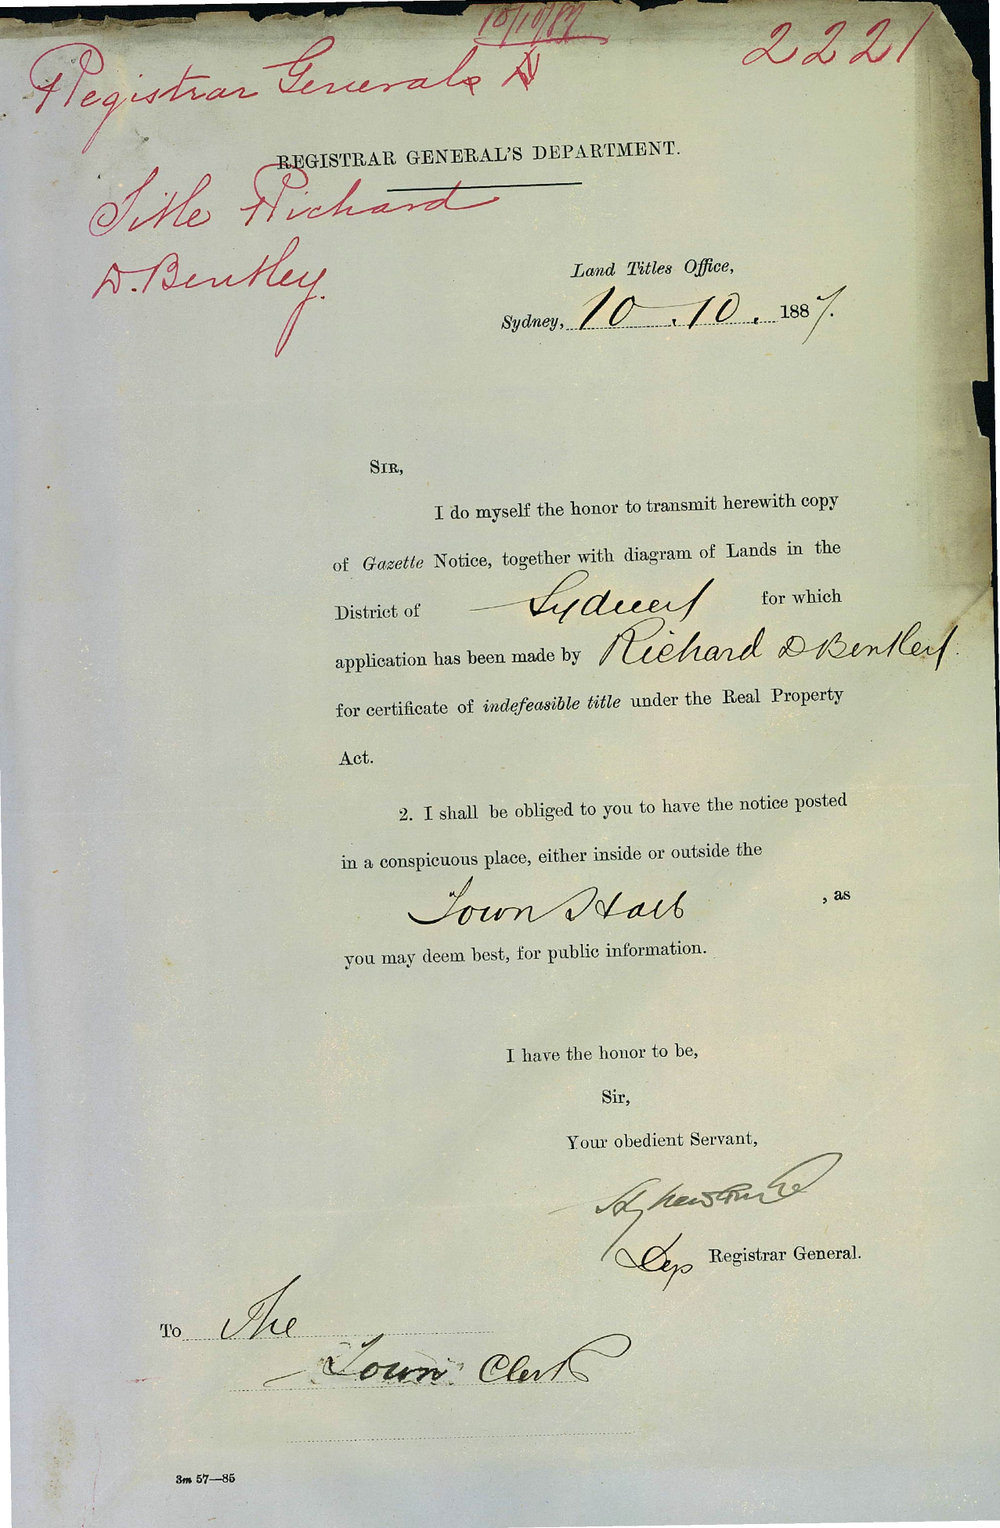 10/10/87
2221
Registrar Generals
REGISTRAR GENERAL'S DEPARTMENT.
Title Richard
D. Bentley.
Land Titles Office,
Sydney, 10.10.1887.
SIR,
I do myself the honor to transmit herewith copy
of Gazette Notice, together with diagram of Lands in the
District of Sydney for which
application has been made by Richard D Bentley.
for certificate of indefeasible title under the Real Property
Act.
2. I shall be obliged to you to have the notice posted
in a conspicuous place, either inside or outside the
Town Hall , as
you may deem best, for public information.
I have the honor to be,
Sir,
Your obedient Servant,
Dep Registrar General.
To The
Town Clerk
3m 57—85